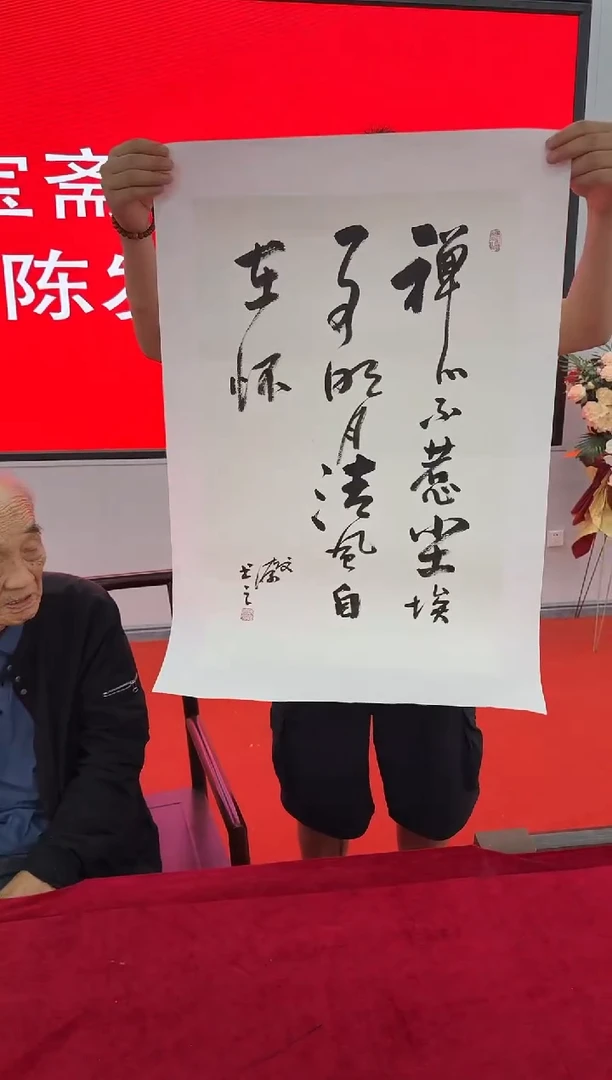 宝斋
陈
禅心不惹尘埃
事明月清风自
在怀
书之